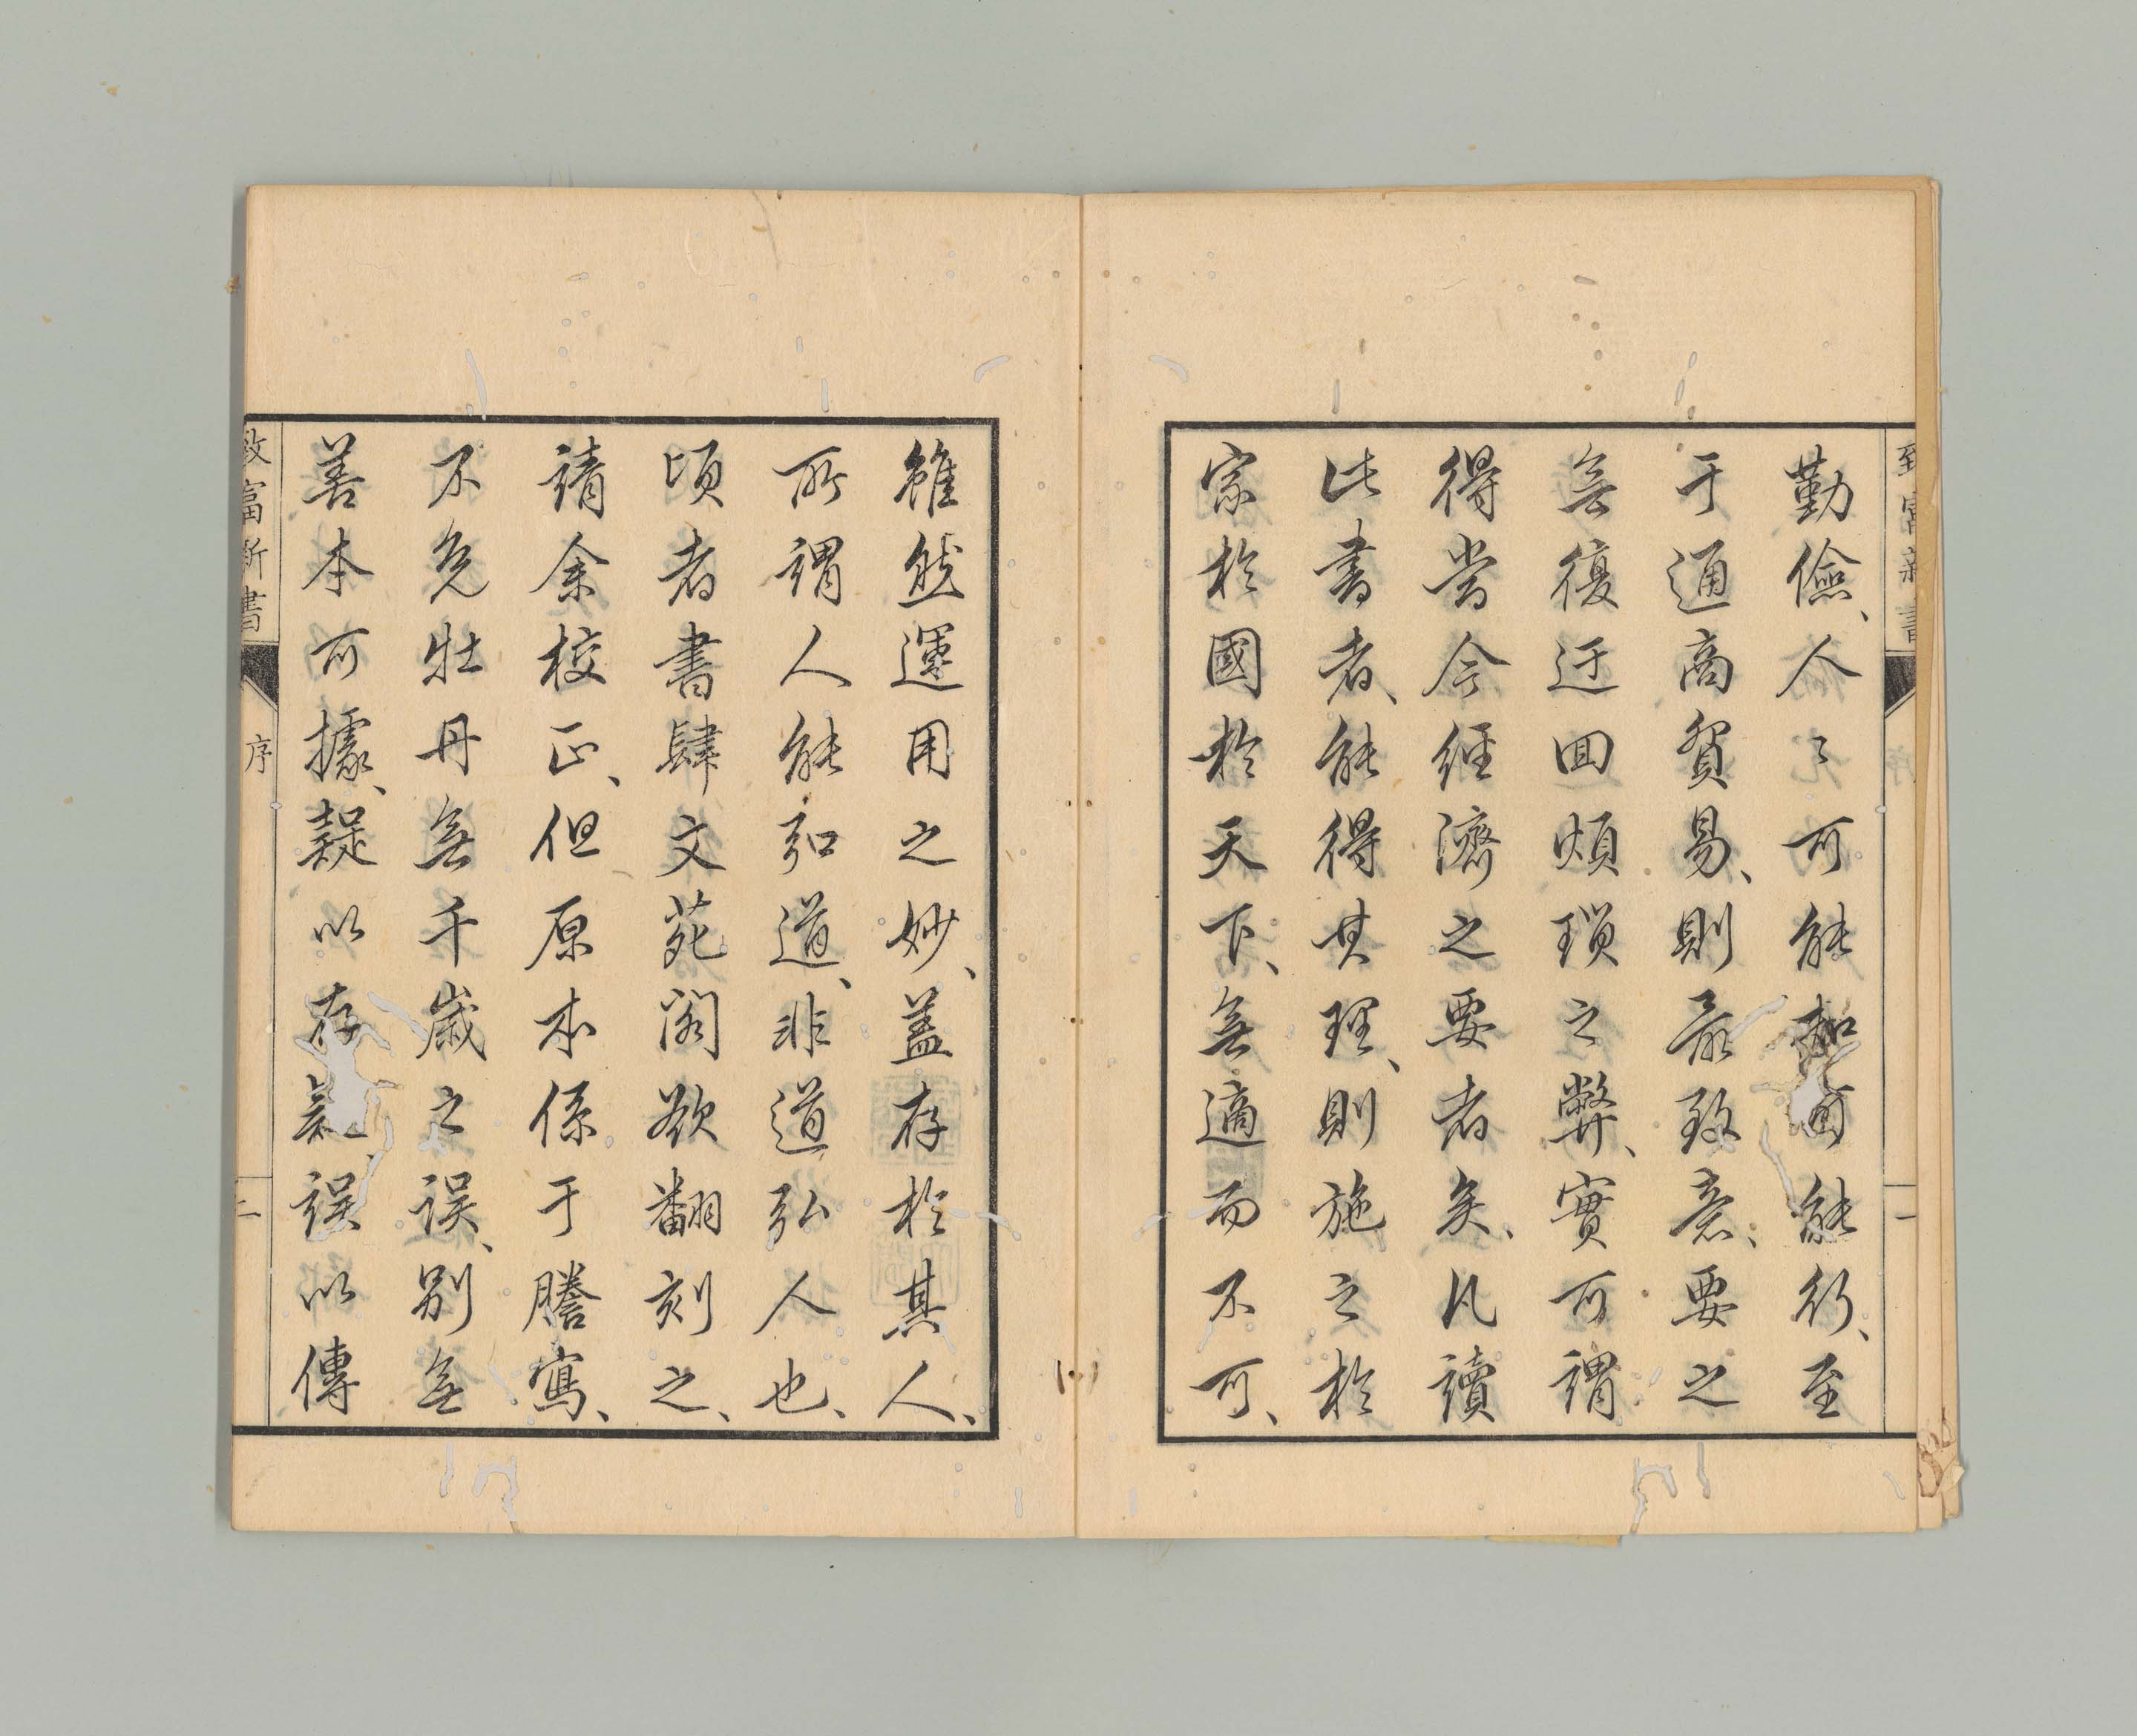 致富新書
一
勤儉、人〻可能知可能行、至
于通商貿易、則最致意、要之
無復迂回煩瑣之弊、實可謂
得當今經濟之要者矣、凡讀
此書者、能得其理、則施之於
家於國於天下、無適而不可、
雖然運用之妙、蓋存於其人、
所謂人能弘道、非道弘人也、
頃者書肆文苑閣欲翻刻之、
請余校正、但原本係于謄寫、
不免牡丹無千歲之誤、別無
善本可據、疑以存疑誤以傳
致富新書
序
二